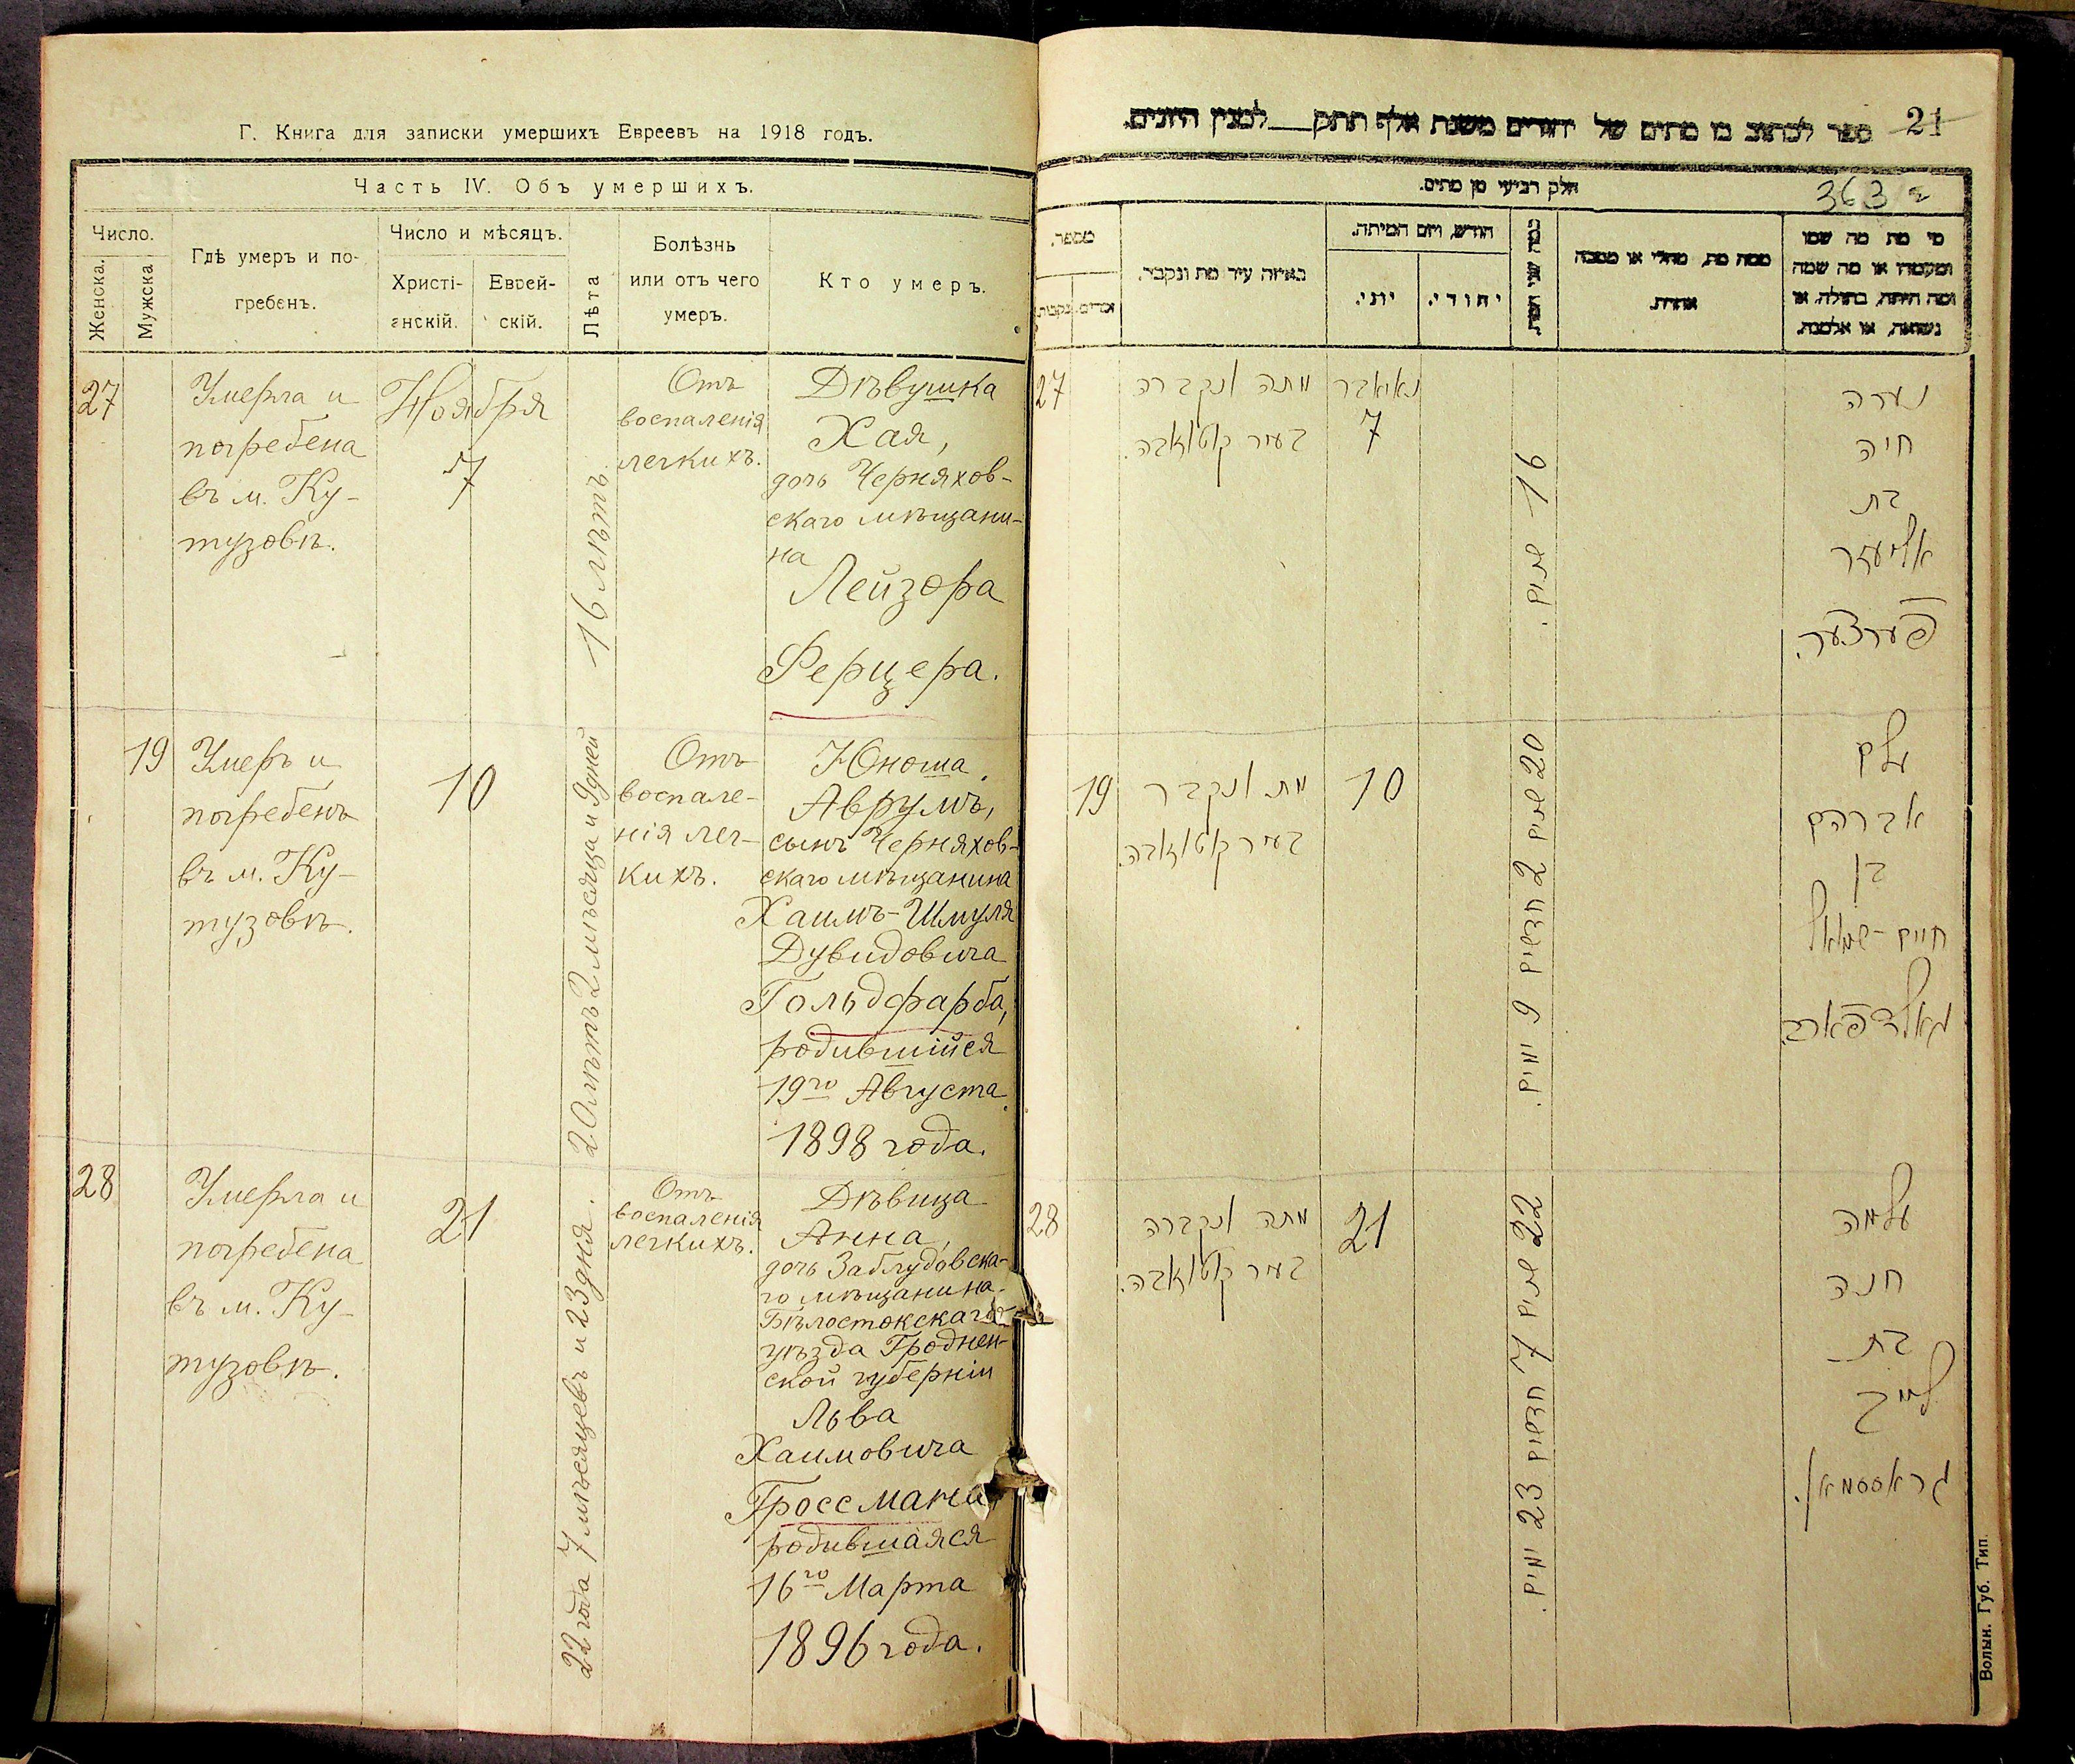 Г. Книга для записки умершихъ Евреевъ на 1918 годъ.
Часть IV. Объ умершихъ.
Число.
Женска.
Мужска
Гдѣ умеръ и по-
гребенъ.
Число и мѣсяцъ.
Христі-
анскій.
Еврей-
скій.
Лѣта
Болѣзнь
или отъ чего
умеръ.
Кто умеръ.
27
Умерла и
погребена
въ м. Ку-
тузовкѣ.
Ноября
7
16 лѣтъ.
Отъ
воспаленія
легкихъ.
Дѣвушка
Хая,
дочь Черняхов-
скаго мѣщани-
на
Лейзора
Ферцера.
19
Умеръ и
погребенъ
въ м. Ку-
тузовкѣ.
10
20 лѣтъ 2 мѣсяца и 9 дней
Отъ
воспале-
нія лег-
кихъ.
Юноша
Аврумъ,
сынъ Черняхов-
скаго мѣщанина
Хаимъ-Шмуля
Дувидовича
Гольдфарба,
родившійся
19го Августа
1898 года.
28
Умерла и
погребена
въ м. Ку-
тузовкѣ.
21
22 года 7 мѣсяцевъ и 23 дня.
Отъ
воспаленія
легкихъ.
Дѣвица
Анна,
дочь Заблудовска-
го мѣщанина
Бѣлостокскаго
уѣзда Гроднен-
ской губерніи
Льва
Хаимовича
Гроссмана
родившаяся
16го Марта
1896 года.
ספר לכתוב בו מתים של יהודים משנת אלף תתק למנין היונים.
21
חלק רביעי מן מתים.
363
מספר.
זכרים.
נקבות
באיזה עיר מת ונקבר.
חודש, ויום המיתה.
יוני.
יהודי.
כמה שני המת
ממה מת, מחלי או מסבה
אחרת.
מי מת מה שמו
ומעמדו או מה שמה
ומה היתה, בתולה, או
נשואה, או אלמנה.
27
מתה ונקברה
בעיר קוטוזאבה.
נאיאבר
7
16 שנים.
נערה
חיה
בת
אליעזר
פערצער.
19
מת ונקבר
בעיר קוטוזאבה.
10
20 שנים 2 חדשים 9 ימים.
עלם
אברהם
בן
חיים-שמואל
גאלדפארב.
28
מתה ונקברה
בעיר קוטוזאבה.
21
22 שנים 7 חדשים 23 ימים.
עלמה
חנה
בת
לייב
גראססמאן.
Волын. Губ. Тип.